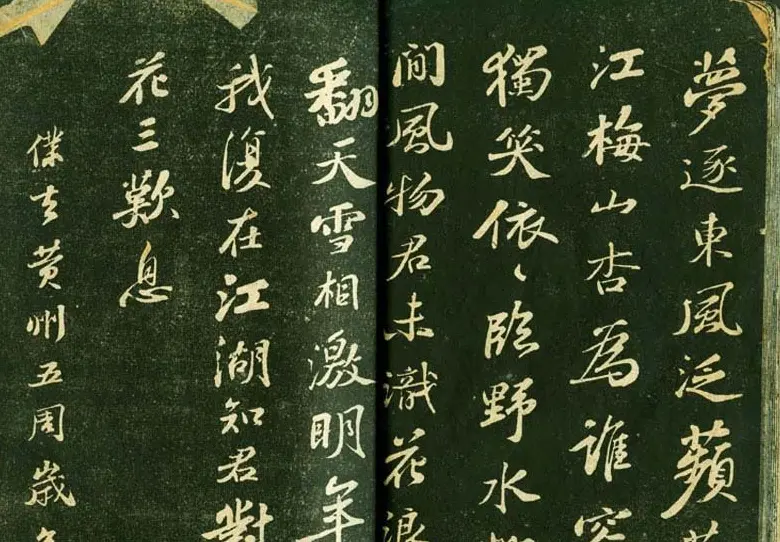 夢逐東風泛蘋
江梅山杏為誰容
獨笑依〻臨野水
間風物君未識花浪
翻天雪相激明年
我復在江湖知君對
花三歎息
僕去黃州五周歲